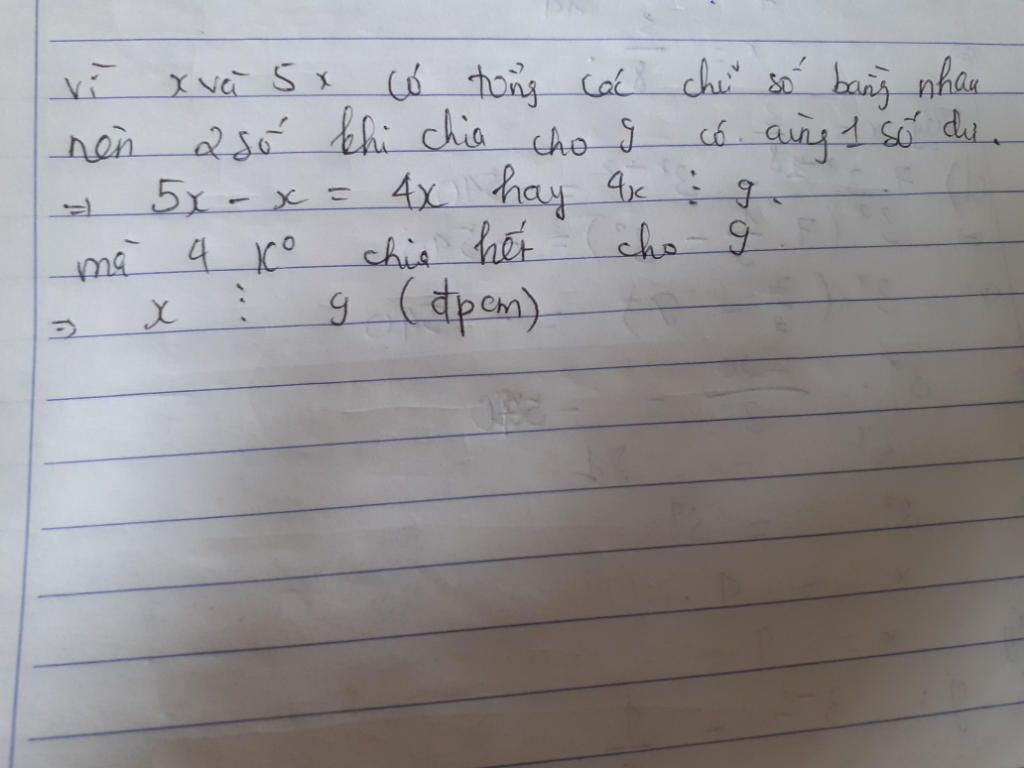 vì x và 5x có tổng các chữ số bằng nhau
nên 2 số khi chia cho 9 có cùng 1 số dư.
=> 5x - x = 4x hay 4x ⋮ 9.
mà 4 K° chia hết cho 9
=> x ⋮ 9 (đpcm)